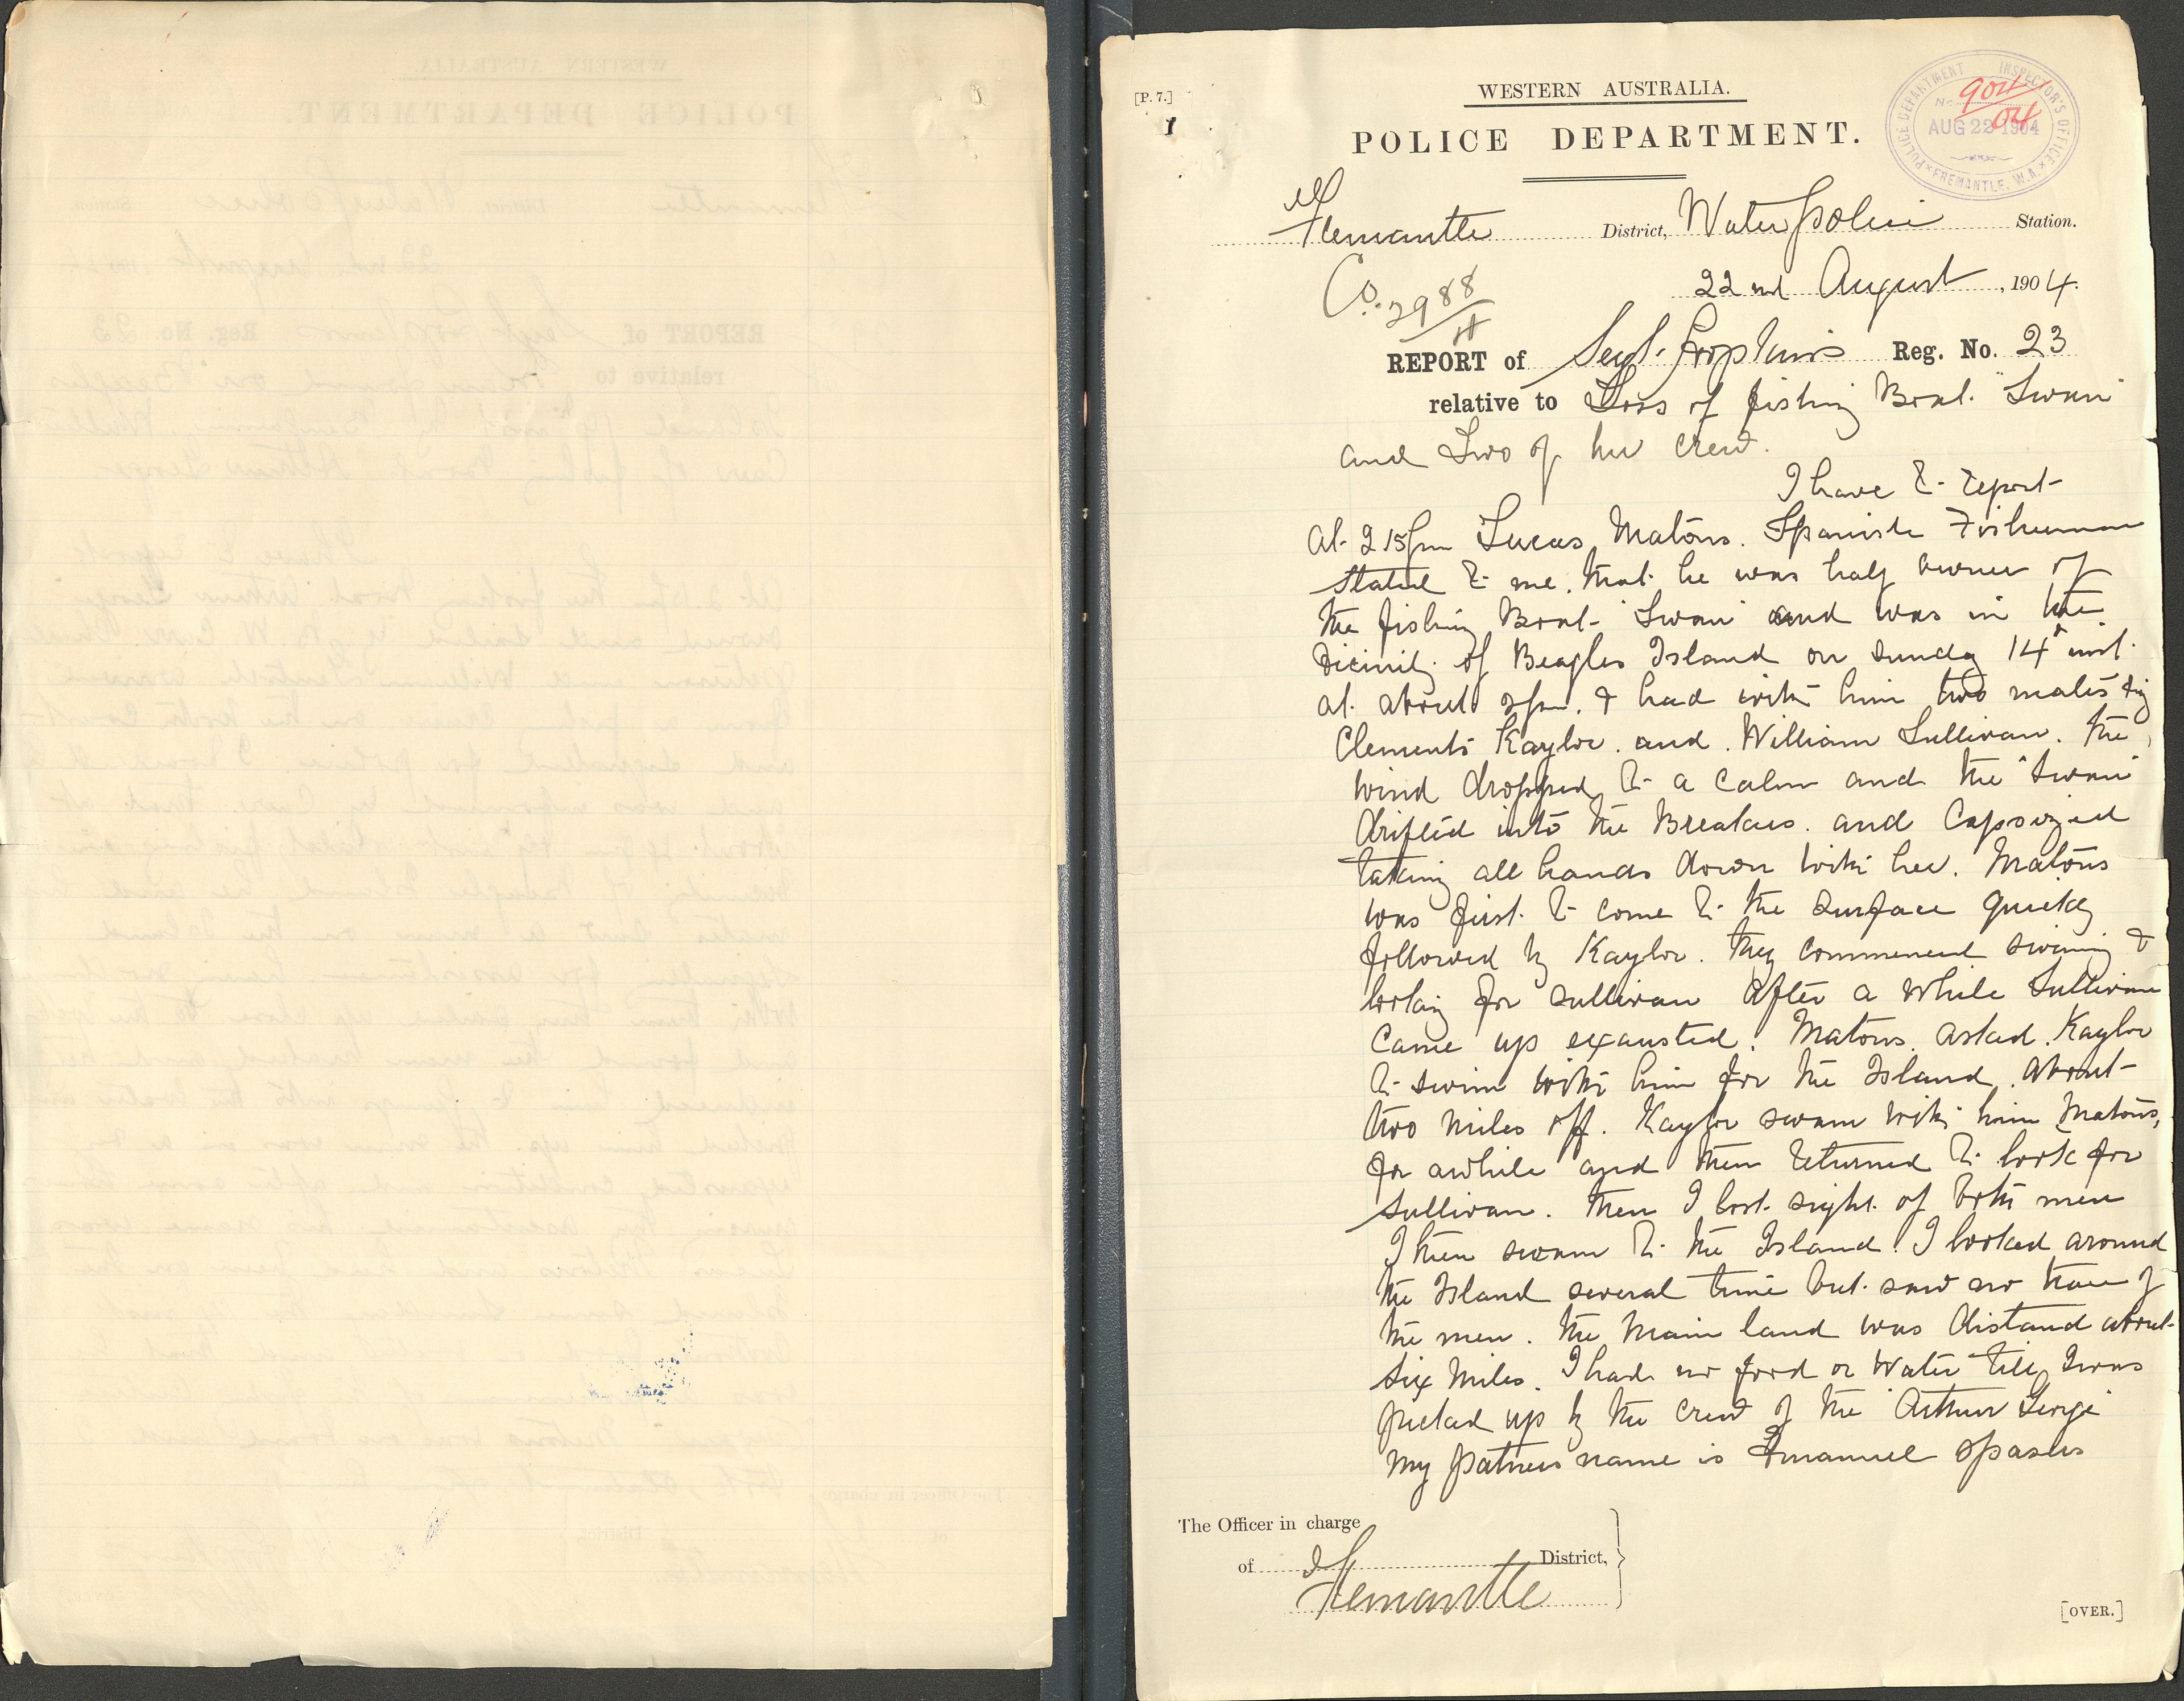 [P. 7.]
1
WESTERN AUSTRALIA.
POLICE DEPARTMENT.
POLICE DEPARTMENT INSPECTOR'S OFFICE
No. 904/04
AUG 22 1904
FREMANTLE, W.A.
Fremantle District, Water Police Station.
Co. 2988
22nd August, 1904.
REPORT of Sergt. Hopkins Reg. No. 23
relative to Loss of fishing Boat. "Swan"
and Two of her crew.
I have to report
at 2 15pm Lucas Matons. Spanish Fisherman
stated to me. that he was half owner of
the fishing Boat "Swan" and was in the
vicinity of Beagles Island on Sunday 14th inst.
at about 2pm. & had with him two mates
Clements Kaylor. and William Sullivan. the
wind dropped to a calm and the "Swan"
drifted into the Breakers. and Capsized
taking all hands down with her. Matons
was first to come to the surface quickly
followed by Kaylor. they commenced swiming &
looking for Sullivan After a while Sullivan
came up exausted. Matons. asked Kaylor
to swim with him for the Island. about
two miles off. Kaylor swam with him Matons,
for awhile and then returned to look for
Sullivan. then I lost sight of both men
I then swam to the Island. I looked around
the Island several time but saw no trace of
the men. the Main land was distand about
six Miles. I had no food or Water till I was
picked up by the crew of the "Arthur George"
my patners name is Emanuel Spasus
The Officer in charge
of Fremantle District,
[OVER.]